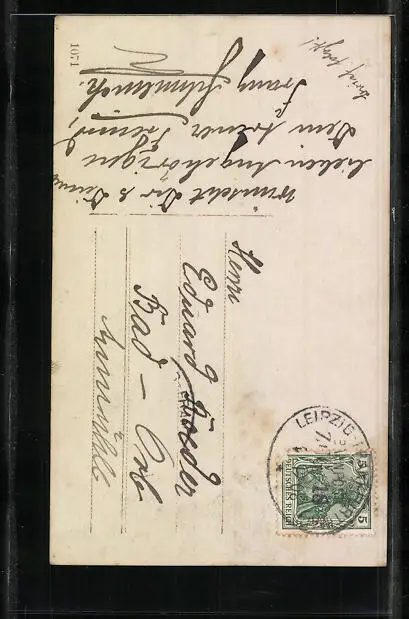 wünscht Dir & Deinen
lieben Angehörigen
Dein treuer Freund,
Franz
Brief folgt!
1071
Herrn
Eduard Roeder
Bad - Orb
LEIPZIG
5 5
DEUTSCHES REICH